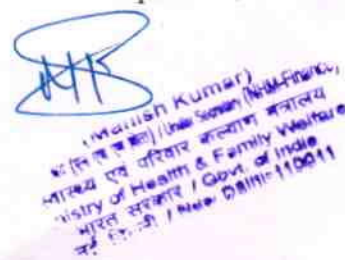 (Manish Kumar)
/ Under Secretary (NHM-Finance)
एवं परिवार कल्याण मंत्रालय
istry of Health & Family Welfare
भारत सरकार / Govt. of India
नई / New Delhi-110011